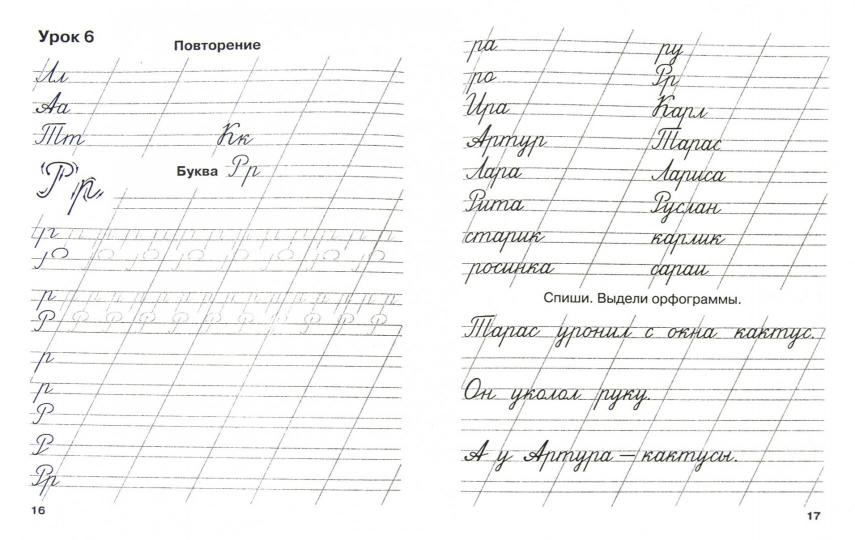 Урок 6
Повторение
Ил
Аа
Тт Кк
Буква Рр
Р р
р
р
р
Р
р
р
Р
Р
Рр
16
ра ру
ро Рр
Ира Карл
Артур Тарас
Лара Лариса
Рита Руслан
старик карлик
росинка сараи
Спиши. Выдели орфограммы.
Тарас уронил с окна кактус.
Он уколол руку.
А у Артура — кактусы.
17